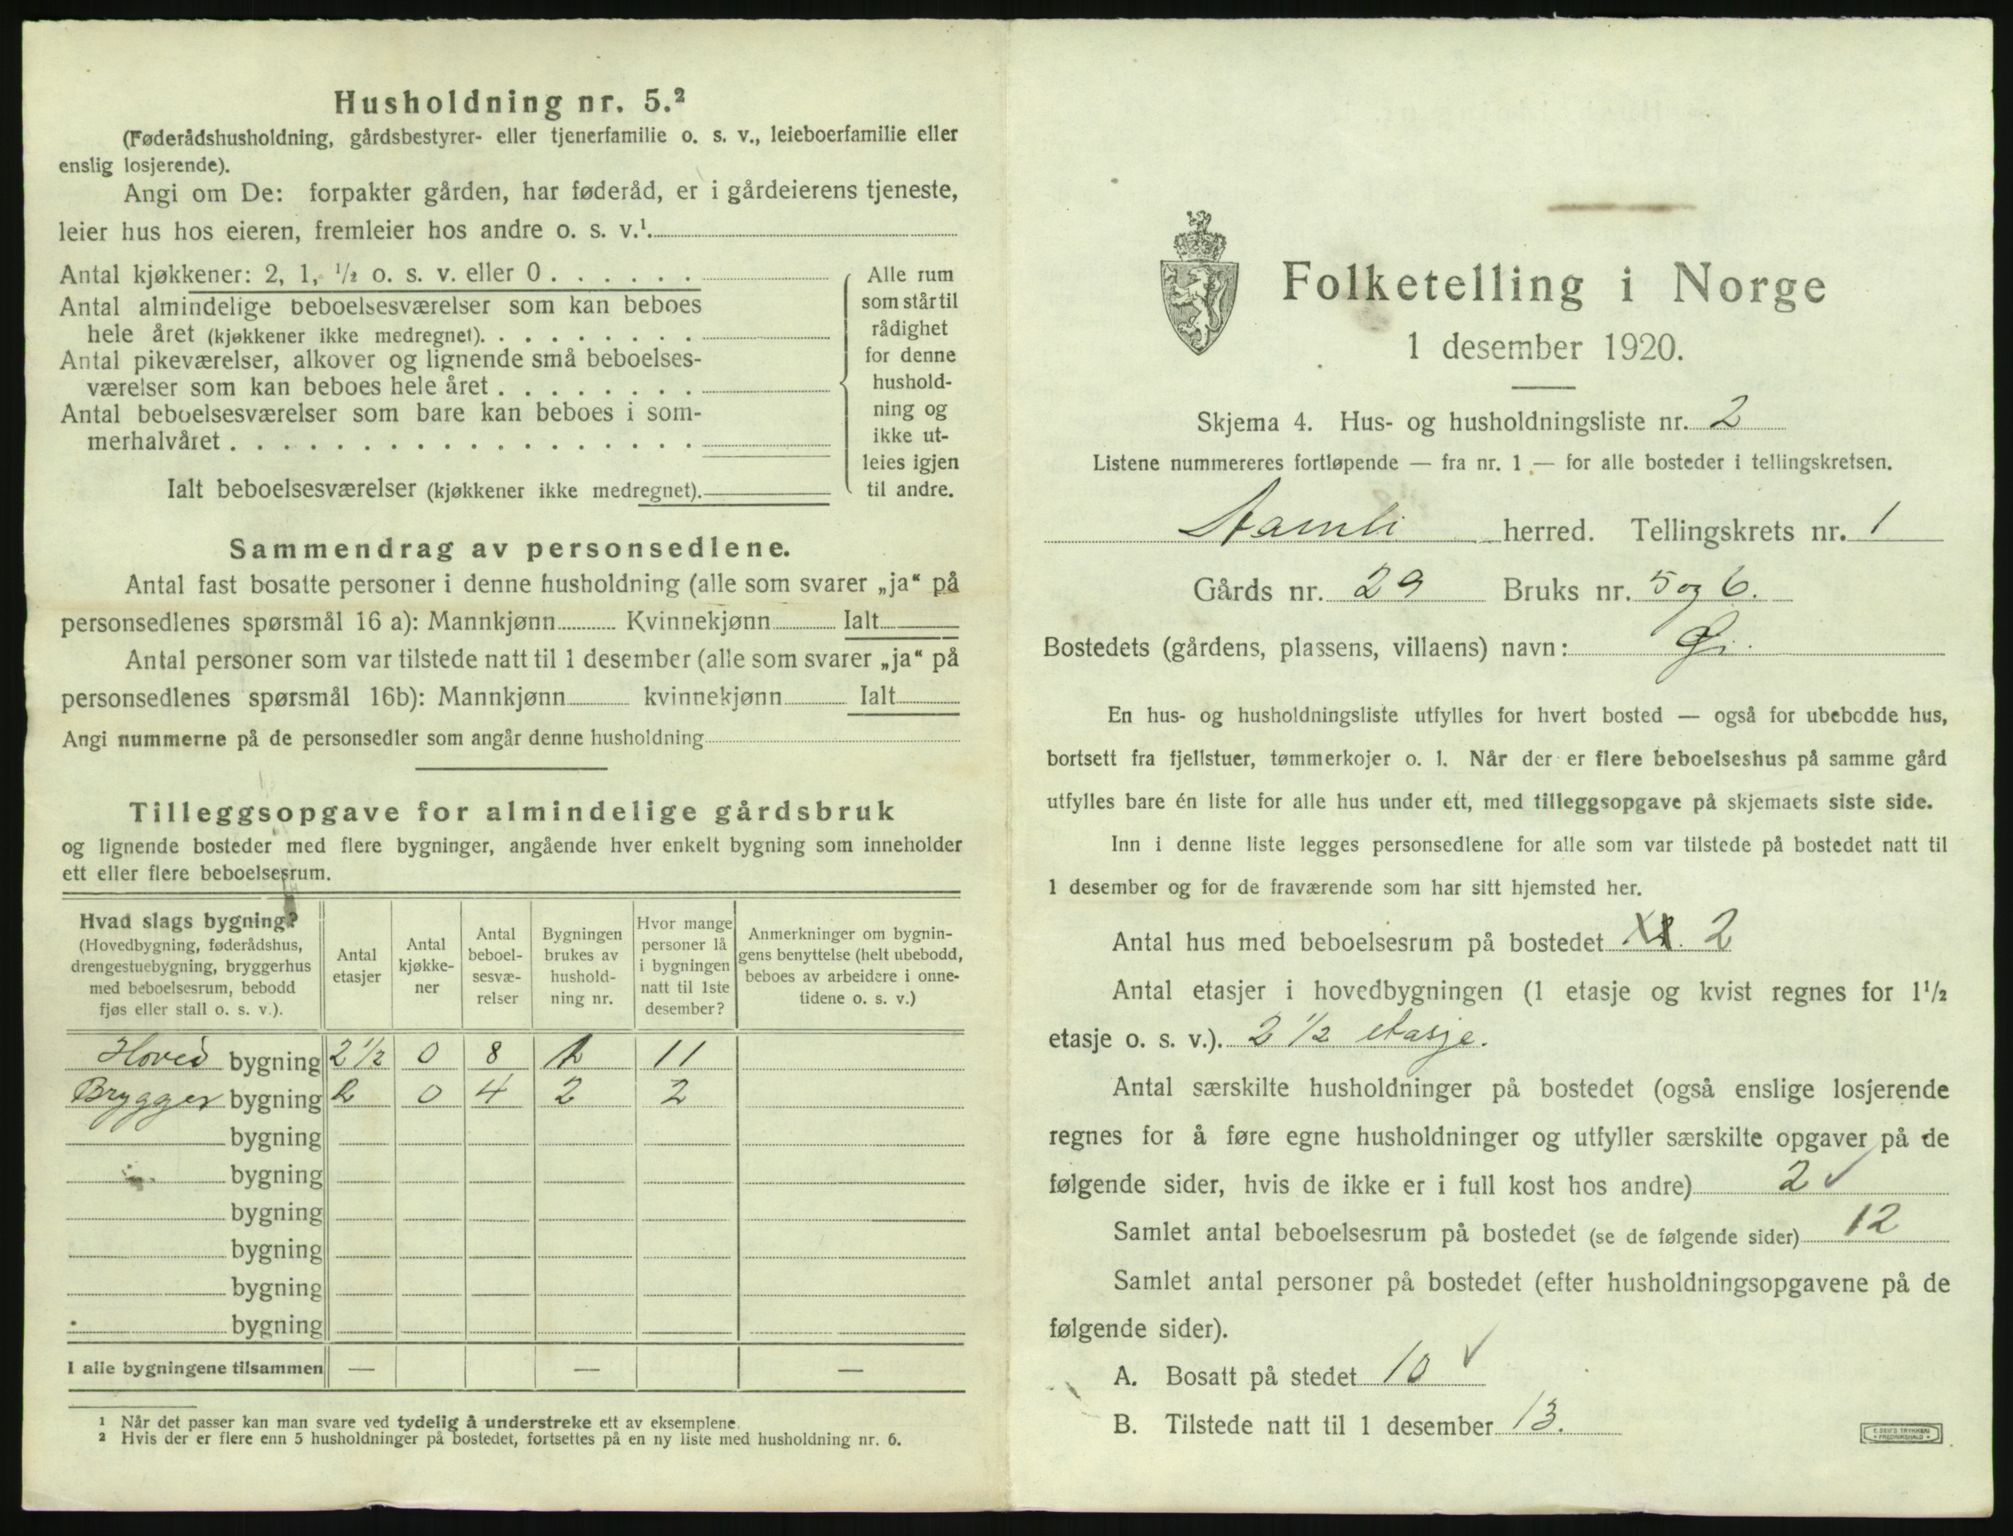 Husholdning nr. 5.²
(Føderådshusholdning, gårdsbestyrer- eller tjenerfamilie o. s. v., leieboerfamilie eller
enslig losjerende).
Angi om De: forpakter gården, har føderåd, er i gårdeierens tjeneste,
leier hus hos eieren, fremleier hos andre o. s. v.¹
Antal kjøkkener: 2, 1, ½ o. s. v. eller 0 . . . . . .
Antal almindelige beboelsesværelser som kan beboes
hele året (kjøkkener ikke medregnet). . . . . . . . .
Antal pikeværelser, alkover og lignende små beboelses-
værelser som kan beboes hele året . . . . . . . .
Antal beboelsesværelser som bare kan beboes i som-
merhalvåret . . . . . . . . . . . . . . . . . .
Ialt beboelsesværelser (kjøkkener ikke medregnet).
Alle rum
som står til
rådighet
for denne
hushold-
ning og
ikke ut-
leies igjen
til andre.
Sammendrag av personsedlene.
Antal fast bosatte personer i denne husholdning (alle som svarer „ja“ på
personsedlenes spørsmål 16 a): Mannkjønn Kvinnekjønn Ialt
Antal personer som var tilstede natt til 1 desember (alle som svarer „ja“ på
personsedlenes spørsmål 16b): Mannkjønn kvinnekjønn Ialt
Angi nummerne på de personsedler som angår denne husholdning
Tilleggsopgave for almindelige gårdsbruk
og lignende bosteder med flere bygninger, angående hver enkelt bygning som inneholder
ett eller flere beboelsesrum.
Hvad slags bygning?
(Hovedbygning, føderådshus,
drengestuebygning, bryggerhus
med beboelsesrum, bebodd
fjøs eller stall o. s. v.).
Antal
etasjer
Antal
kjøkke-
ner
Antal
beboel-
sesvæ-
relser
Bygningen
brukes av
hushold-
ning nr.
Hvor mange
personer lå
i bygningen
natt til 1ste
desember?
Anmerkninger om bygnin-
gens benyttelse (helt ubebodd,
beboes av arbeidere i onne-
tidene o. s. v.)
Hoved bygning 2 1/2 0 8 1 11
Brygger bygning 2 0 4 2 2
bygning
bygning
bygning
bygning
bygning
bygning
I alle bygningene tilsammen — — —
¹ Når det passer kan man svare ved tydelig å understreke ett av eksemplene.
² Hvis der er flere enn 5 husholdninger på bostedet, fortsettes på en ny liste med husholdning nr. 6.
Folketelling i Norge
1 desember 1920.
Skjema 4. Hus- og husholdningsliste nr. 2
Listene nummereres fortløpende — fra nr. 1 — for alle bosteder i tellingskretsen.
Aamli herred. Tellingskrets nr. 1
Gårds nr. 29 Bruks nr. 5 og 6.
Bostedets (gårdens, plassens, villaens) navn: Øi.
En hus- og husholdningsliste utfylles for hvert bosted — også for ubebodde hus,
bortsett fra fjellstuer, tømmerkojer o. l. Når der er flere beboelseshus på samme gård
utfylles bare én liste for alle hus under ett, med tilleggsopgave på skjemaets siste side.
Inn i denne liste legges personsedlene for alle som var tilstede på bostedet natt til
1 desember og for de fraværende som har sitt hjemsted her.
Antal hus med beboelsesrum på bostedet 2
Antal etasjer i hovedbygningen (1 etasje og kvist regnes for 1½
etasje o. s. v.). 2 1/2 etasje.
Antal særskilte husholdninger på bostedet (også enslige losjerende
regnes for å føre egne husholdninger og utfyller særskilte opgaver på de
følgende sider, hvis de ikke er i full kost hos andre) 2 ✓
Samlet antal beboelsesrum på bostedet (se de følgende sider) 12
Samlet antal personer på bostedet (efter husholdningsopgavene på de
følgende sider).
A. Bosatt på stedet 10 ✓
B. Tilstede natt til 1 desember 13.